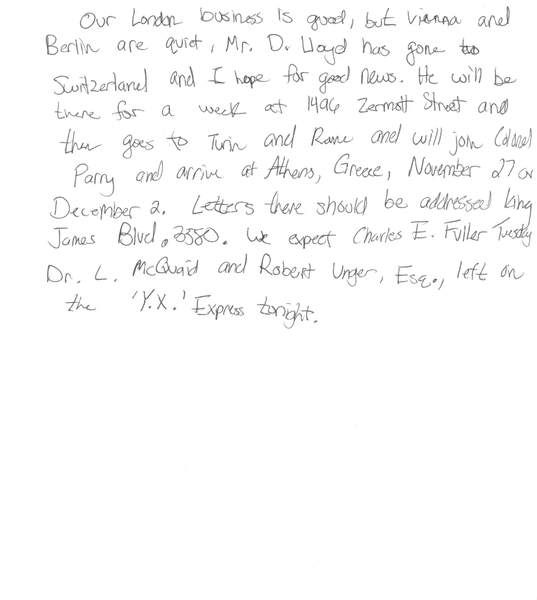 Our London business is good, but Vienna and
Berlin are quiet, Mr. D. Lloyd has gone to
Switzerland and I hope for good news. He will be
there for a week at 1496 Zermott Street and
then goes to Turin and Rome and will join Colonel
Parry and arrive at Athens, Greece, November 27 or
December 2. Letters there should be addressed King
James Blvd, 3380. We expect Charles E. Fuller Tuesday
Dr. L. McQuaid and Robert Unger, Esq., left on
the 'Y.X.' Express tonight.